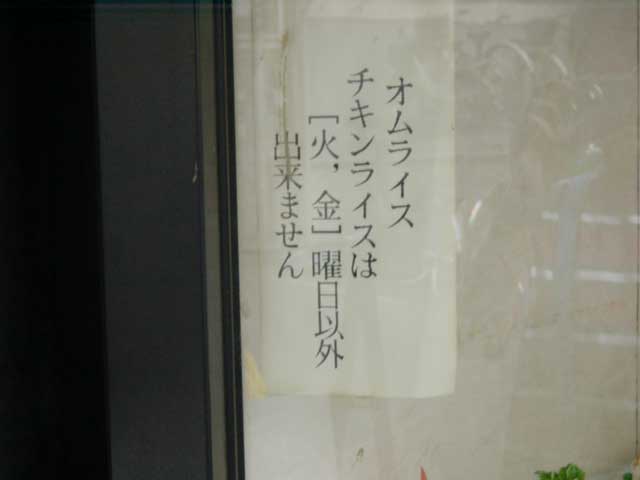 オムライス
チキンライスは
[火，金]曜日以外
出来ません